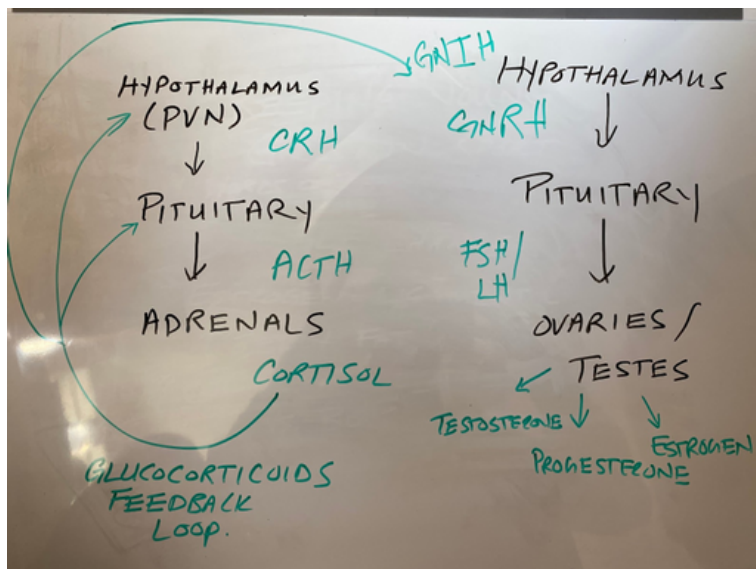 HYPOTHALAMUS
(PVN)
CRH
PITUITARY
ACTH
ADRENALS
CORTISOL
GLUCOCORTICOIDS
FEEDBACK
LOOP.
GNIH
HYPOTHALAMUS
GNRH
PITUITARY
FSH/
LH
OVARIES/
TESTES
TESTOSTERONE
PROGESTERONE
ESTROGEN